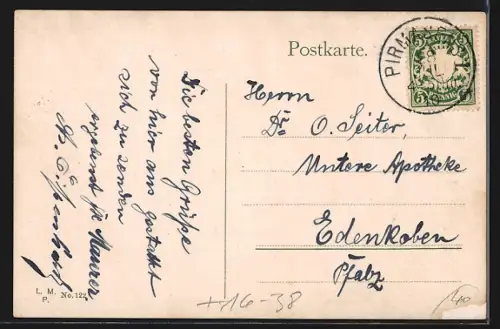 Postkarte.
PIRMASENS
5 5
5 5
Herrn
Dr. O. Seiter,
Untere Apotheke
Edenkoben
Pfalz
Die besten Grüße
von hier aus gestattet
sich zu senden
ergebenst
L. M. No. 122
P.
+16-38
40